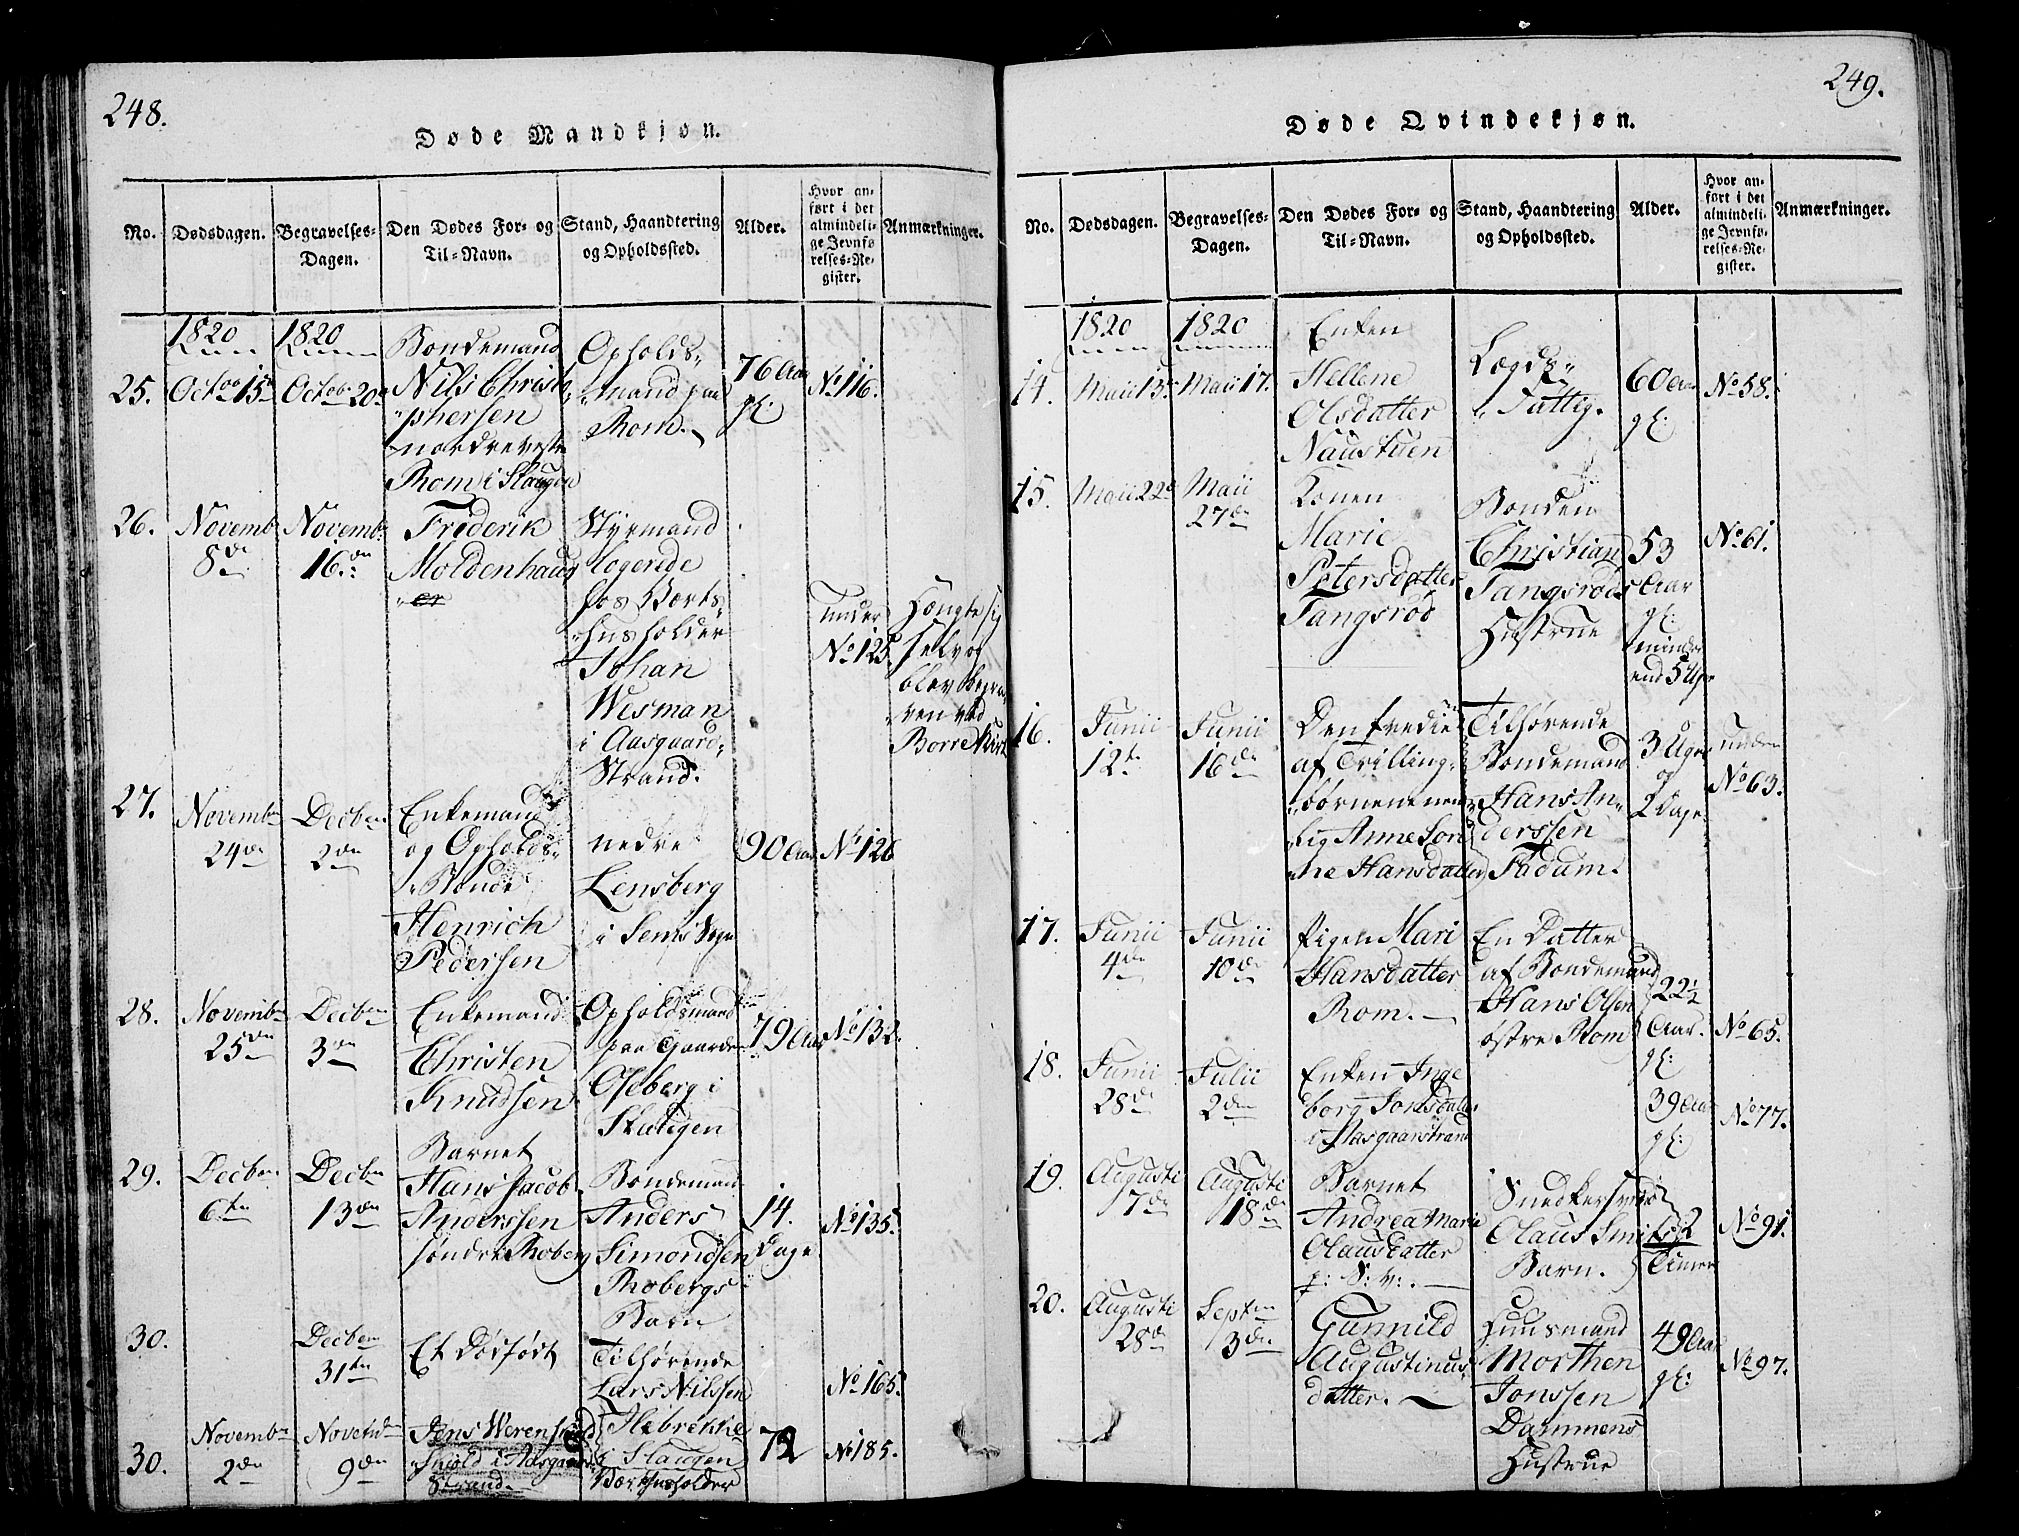 248.
Døde Mandkjøn.
No.
Dødsdagen.
Begravelses-
Dagen.
Den Dødes For- og
Til-Navn.
Stand, Haandtering
og Opholdssted.
Alder.
Hvor an-
ført i det
almindeli-
ge Jevnfø
relses-Re-
gister.
Anmærkninger.
1820 1820
25.
Octob 15d
Octob. 20d
Bondemand
Nils Christo
phersen
nordrevestre
Rom i Slaugen
Opholds-
mand paa
Rom.
76 Aar
gl:
No 116.
26.
Novemb
8de
Novemb.
16den
Frederik
Moldenhau
er
Styrmand
logerede
hos Værts-
husholder
Johan
Wesman
i Aasgaard-
Strand.
under
No 125.
Hængte sig
selv og
blev begra-
ven ved
Borre Kirke
27.
Novembr
24de
Decbr
2den
Enkemand
og Opholds-
Bonde
Henrich
Pedersen
nedre
Lensberg
i Sems Sogn
90 Aar
No 126
28.
Novembr
25de
Decbr
3die
Enkemand
Christen
Knudsen
Opholdsmand
paa Gaarden
Oseberg i
Slaugen
79 Aar
No 132.
29.
Decbr
6te
Decbr
13de
Barnet
Hans Jacob
Anderssen
søndre Roberg
Bondemand
Anders
Simondsen
Robergs
Barn
14.
Dage
No 135.
30.
Decbr
31te
Et dødfødt
Tilhørende
Lars Nilssen
Hebrekke
i Slaugen
No 165.
30.
Novembr
2den
Novembr
9den
Jens Werenskiold
i Aasgaard
Strand.
Værtshusholder
72
No 185.
249.
Døde Qvindekjøn.
No.
Dødsdagen.
Begravelses-
Dagen.
Den Dødes For- og
Til-Navn.
Stand, Haandtering
og Opholdssted.
Alder.
Hvor an-
ført i det
almindeli-
ge Jevnfø-
relses-Re-
gister.
Anmærkninger.
1820 1820
14.
Maii 13.
Maii 17.
Enken
Hellene
Olsdatter
Naustuen
Lægds-
Fattig.
60 Aar
gl:
No 58.
15.
Maii 22d
Maii
27de
Konen
Marie
Petersdatter
Tangsrød
Bonden
Christian
Tangsrøds
Hustrue
53
Aar
gl:
mindre
end 5 Uger
No 61.
16.
Junii
12te
Junii
16de
Den tredie
af Trilling-
børnene nem-
lig Anne Lori
ne Hansdatter
Tilhørende
Bondemand
Hans An-
derssen
Fadum.
3 Uger
og
2 Dage
under
No 63.
17.
Junii
4de
Junii
10de
Pigen Mari
Hansdatter
Rom.
En Datter
af Bondemand
Hans Olsen
østre Rom
22½
Aar.
gl:
No 65.
18.
Junii
28de
Julii
2den
Enken Inge
borg Jonsdatter
i Aasgaarstrand
39 Aar
gl:
No 77.
19.
Augusti
17de
Augusti
18de
Barnet
Andrea Marie
Clausdatter
p: S: v:.
Snedkersvend
Claus Smits
Barn.
2
Timer
No 91.
20.
Augusti
28de
Septbr
3die
Gunnild
Augustinus-
datter.
Huusmand
Morthen
Jonssen
Dammens
Hustrue
49 Aar
gl:
No 97.